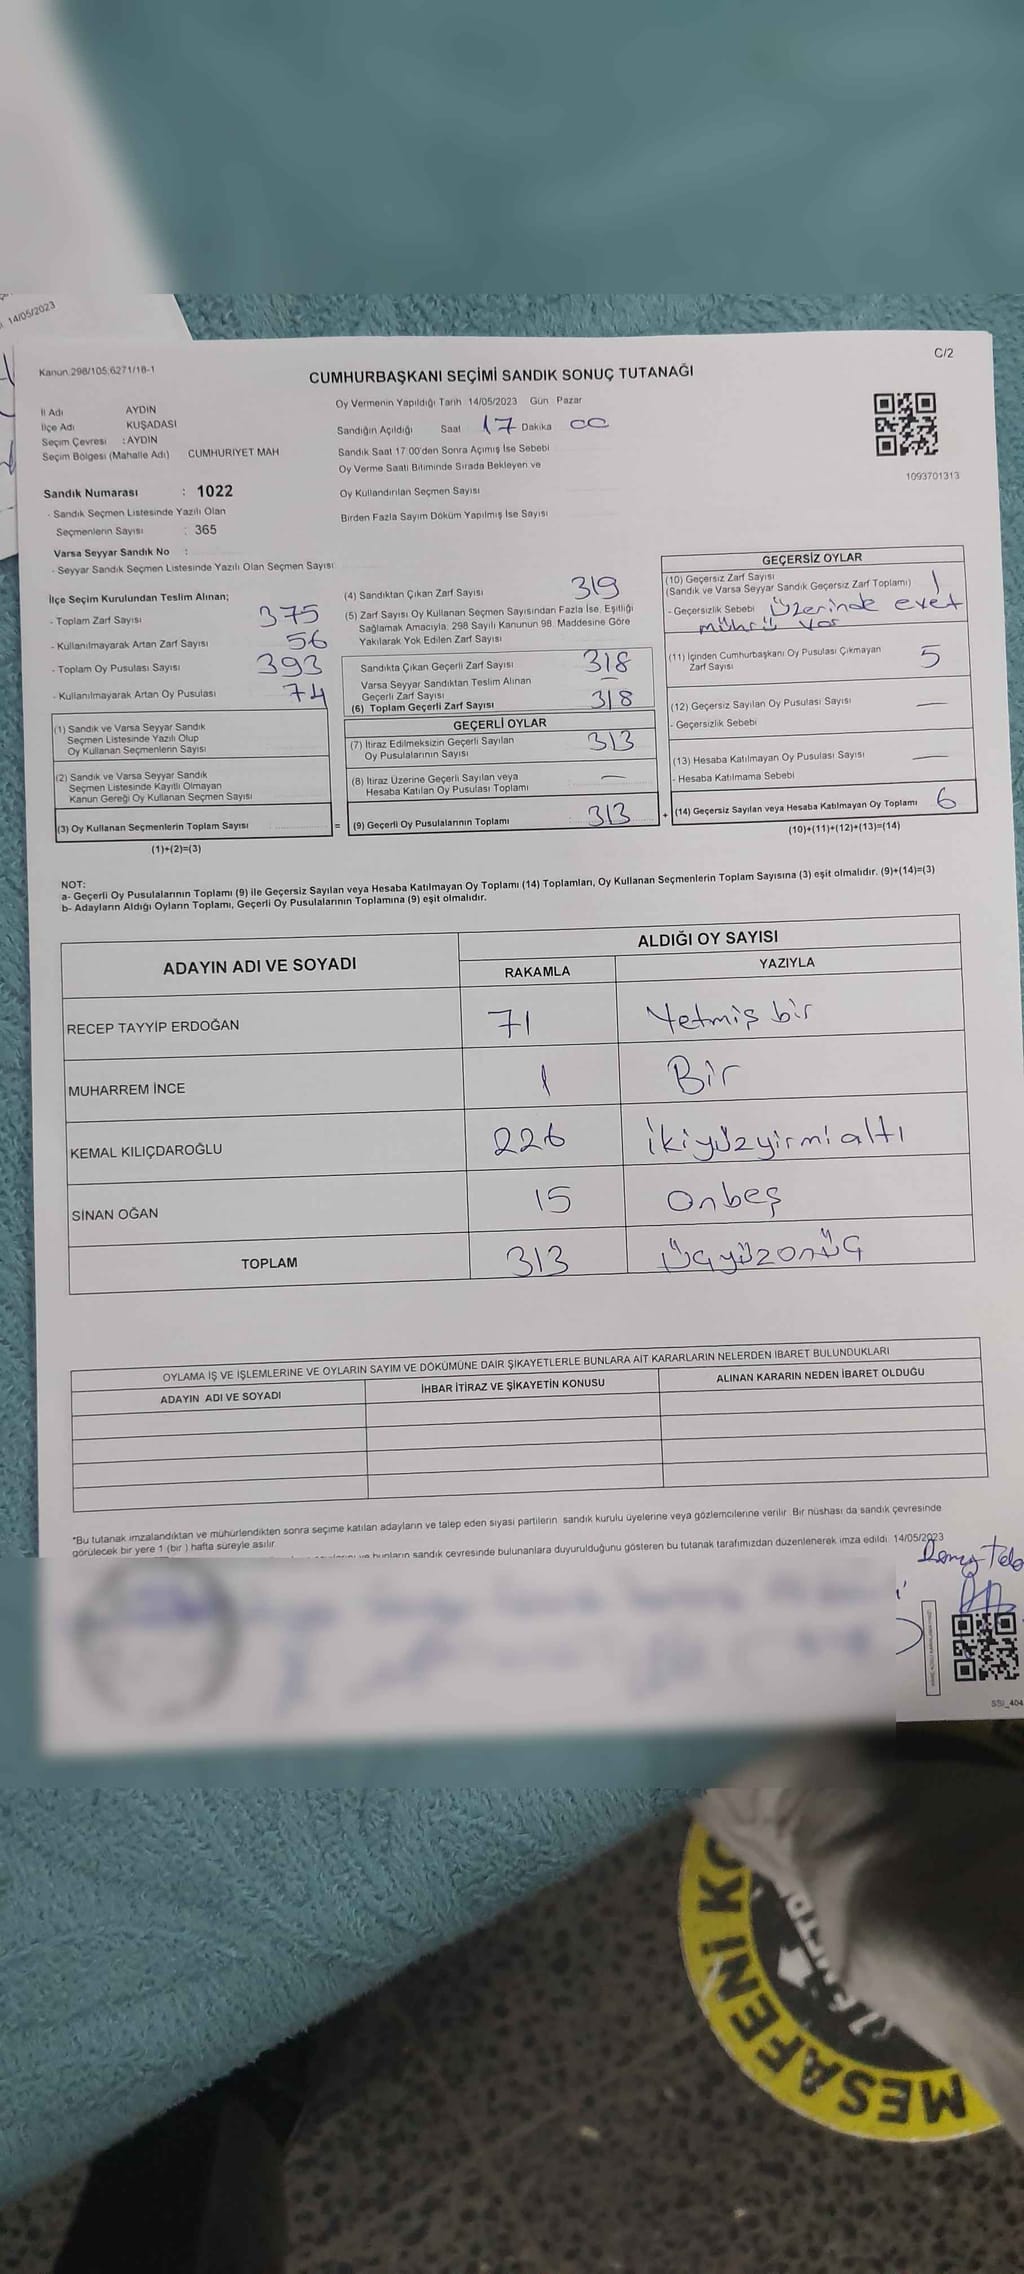 14/05/2023
C/2
Kanun:298/105;6271/18-1
CUMHURBAŞKANI SEÇİMİ SANDIK SONUÇ TUTANAĞI
İl Adı AYDIN
İlçe Adı KUŞADASI
Seçim Çevresi : AYDIN
Seçim Bölgesi (Mahalle Adı) CUMHURİYET MAH
Oy Vermenin Yapıldığı Tarih 14/05/2023 Gün Pazar
Sandığın Açıldığı Saat 17 Dakika 00
Sandık Saat 17 00'den Sonra Açımış İse Sebebi
Oy Verme Saati Bitiminde Sırada Bekleyen ve
Oy Kullandırılan Seçmen Sayısı
Birden Fazla Sayım Döküm Yapılmış İse Sayısı
1093701313
Sandık Numarası : 1022
- Sandık Seçmen Listesinde Yazılı Olan
Seçmenlerin Sayısı : 365
Varsa Seyyar Sandık No :
- Seyyar Sandık Seçmen Listesinde Yazılı Olan Seçmen Sayısı
İlçe Seçim Kurulundan Teslim Alınan;
- Toplam Zarf Sayısı 375
- Kullanılmayarak Artan Zarf Sayısı 56
- Toplam Oy Pusulası Sayısı 393
- Kullanılmayarak Artan Oy Pusulası 74
(1) Sandık ve Varsa Seyyar Sandık
Seçmen Listesinde Yazılı Olup
Oy Kullanan Seçmenlerin Sayısı
(2) Sandık ve Varsa Seyyar Sandık
Seçmen Listesinde Kayıtlı Olmayan
Kanun Gereği Oy Kullanan Seçmen Sayısı
(3) Oy Kullanan Seçmenlerin Toplam Sayısı
(1)+(2)=(3)
(4) Sandıktan Çıkan Zarf Sayısı 319
(5) Zarf Sayısı Oy Kullanan Seçmen Sayısından Fazla İse, Eşitliği
Sağlamak Amacıyla, 298 Sayılı Kanunun 98. Maddesine Göre
Yakılarak Yok Edilen Zarf Sayısı
Sandıkta Çıkan Geçerli Zarf Sayısı 318
Varsa Seyyar Sandıktan Teslim Alınan
Geçerli Zarf Sayısı —
(6) Toplam Geçerli Zarf Sayısı 318
GEÇERLİ OYLAR
(7) İtiraz Edilmeksizin Geçerli Sayılan
Oy Pusulalarının Sayısı 313
(8) İtiraz Üzerine Geçerli Sayılan veya
Hesaba Katılan Oy Pusulası Toplamı —
= (9) Geçerli Oy Pusulalarının Toplamı 313
GEÇERSİZ OYLAR
(10) Geçersiz Zarf Sayısı
(Sandık ve Varsa Seyyar Sandık Geçersiz Zarf Toplamı) 1
- Geçersizlik Sebebi Üzerinde evet
mührü var
(11) İçinden Cumhurbaşkanı Oy Pusulası Çıkmayan
Zarf Sayısı 5
(12) Geçersiz Sayılan Oy Pusulası Sayısı —
- Geçersizlik Sebebi
(13) Hesaba Katılmayan Oy Pusulası Sayısı —
- Hesaba Katılmama Sebebi
+ (14) Geçersiz Sayılan veya Hesaba Katılmayan Oy Toplamı 6
(10)+(11)+(12)+(13)=(14)
NOT:
a- Geçerli Oy Pusulalarının Toplamı (9) ile Geçersiz Sayılan veya Hesaba Katılmayan Oy Toplamı (14) Toplamları, Oy Kullanan Seçmenlerin Toplam Sayısına (3) eşit olmalıdır. (9)+(14)=(3)
b- Adayların Aldığı Oyların Toplamı, Geçerli Oy Pusulalarının Toplamına (9) eşit olmalıdır.
ADAYIN ADI VE SOYADI ALDIĞI OY SAYISI
RAKAMLA YAZIYLA
RECEP TAYYİP ERDOĞAN 71 Yetmiş bir
MUHARREM İNCE 1 Bir
KEMAL KILIÇDAROĞLU 226 ikiyüzyirmialtı
SİNAN OĞAN 15 Onbeş
TOPLAM 313 Üçyüzonüç
OYLAMA İŞ VE İŞLEMLERİNE VE OYLARIN SAYIM VE DÖKÜMÜNE DAİR ŞİKAYETLERLE BUNLARA AİT KARARLARIN NELERDEN İBARET BULUNDUKLARI
ADAYIN ADI VE SOYADI İHBAR İTİRAZ VE ŞİKAYETİN KONUSU ALINAN KARARIN NEDEN İBARET OLDUĞU
*Bu tutanak imzalandıktan ve mühürlendikten sonra seçime katılan adayların ve talep eden siyasi partilerin sandık kurulu üyelerine veya gözlemcilerine verilir Bir nüshası da sandık çevresinde
görülecek bir yere 1 (bir ) hafta süreyle asılır.
ve bunların sandık çevresinde bulunanlara duyurulduğunu gösteren bu tutanak tarafımızdan düzenlenerek imza edildi. 14/05/2023
SSİ_404
MESAFENİ KO